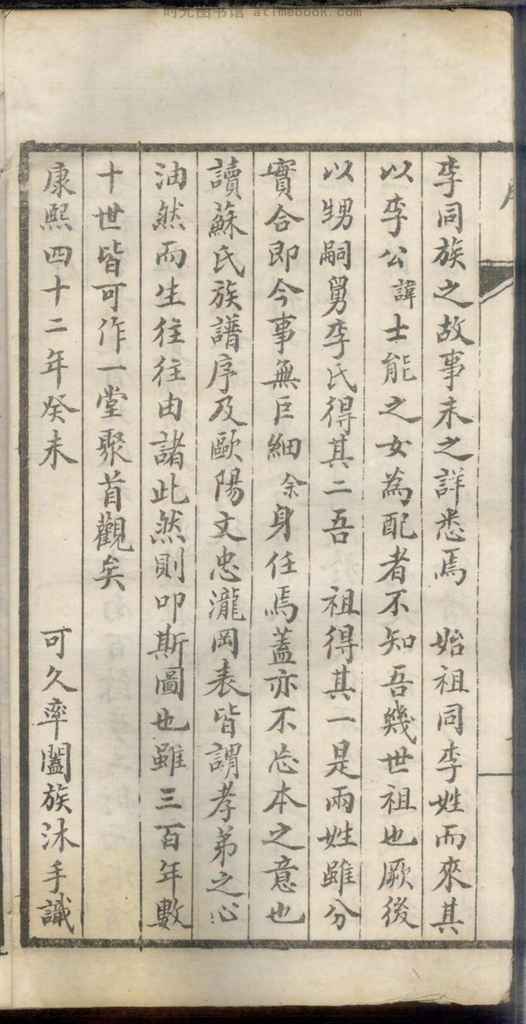 时光图书馆 atimebook.com
李同族之故事未之詳悉焉　始祖同李姓而來其
以李公諱士能之女為配者不知吾幾世祖也厥後
以甥嗣舅李氏得其二吾　祖得其一是兩姓雖分
實合即今事無巨細余身任焉蓋亦不忘本之意也
讀蘇氏族譜序及歐陽文忠瀧岡表皆謂孝弟之心
油然而生往往由諸此然則叩斯圖也雖三百年數
十世皆可作一堂聚首觀矣
康熙四十二年癸未　可久率闔族沐手識